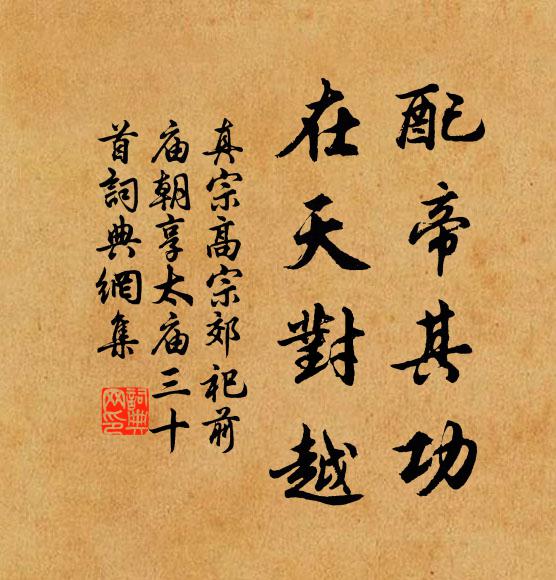 配帝其功
在天對越
真宗高宗郊祀前
庙朝享太庙三十
首詞典網集
詞典
网印